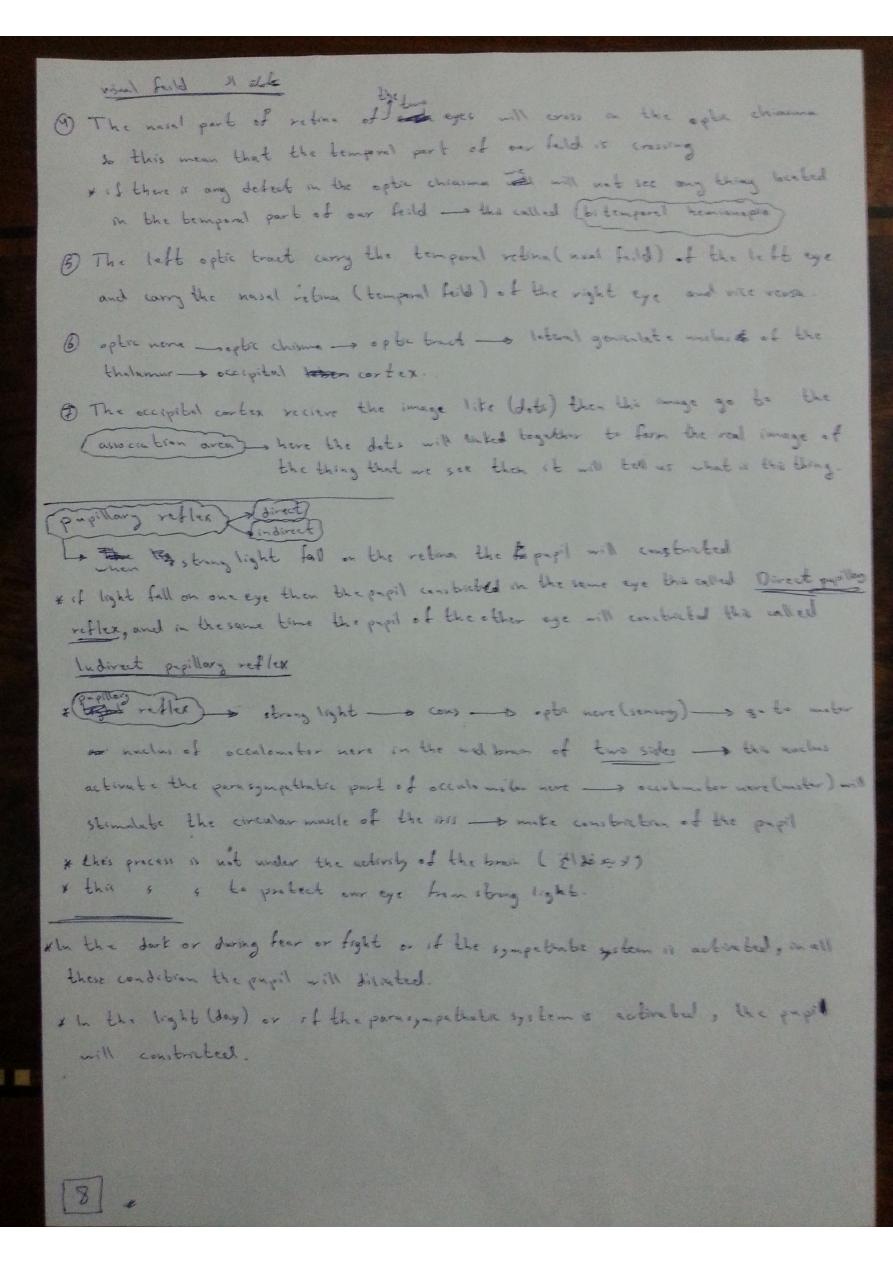 visual feild
④ The nasal part of retina of the two eyes will cross in the optic chiasma
so this mean that the temporal part of our feild is crossing
* if there is any defect in the optic chiasma will not see any thing located
in the temporal part of our feild → this called bitemporal hemianopia
⑤ The left optic tract carry the temporal retina (nasal feild) of the left eye
and carry the nasal retina (temporal feild) of the right eye and vice versa.
⑥ optic nerve → optic chisma → optic tract → lateral geniculate nucleus of the
thalamus → occipital cortex.
⑦ The occipital cortex recieve the image like (dots) then this image go to the
association area → here the dots will linked together to form the real image of
the thing that we see then it will tell us what is this thing.
pupillary reflex → direct
→ indirect
when strong light fall on the retina the pupil will constricted
* if light fall on one eye then the pupil constricted in the same eye this called Direct pupillary
reflex, and in the same time the pupil of the other eye will constricted this called
Indirect pupillary reflex
* pupillary reflex → strong light → cons → optic nerve (sensory) → go to motor
nuclus of occulomotor nerve in the mid brain of two sides → this nuclus
activate the parasympathatic part of occulomotor nerve → occulomotor nerve (motor) will
stimulate the circular muscle of the iris → make constriction of the pupil
* this process is not under the activity of the brain
* this to protect our eye from strong light.
* In the dark or during fear or fight or if the sympathatic system is activated, in all
these condition the pupil will dilated.
* In the light (day) or if the parasympathatic system is activated, the pupil
will constricted.
8